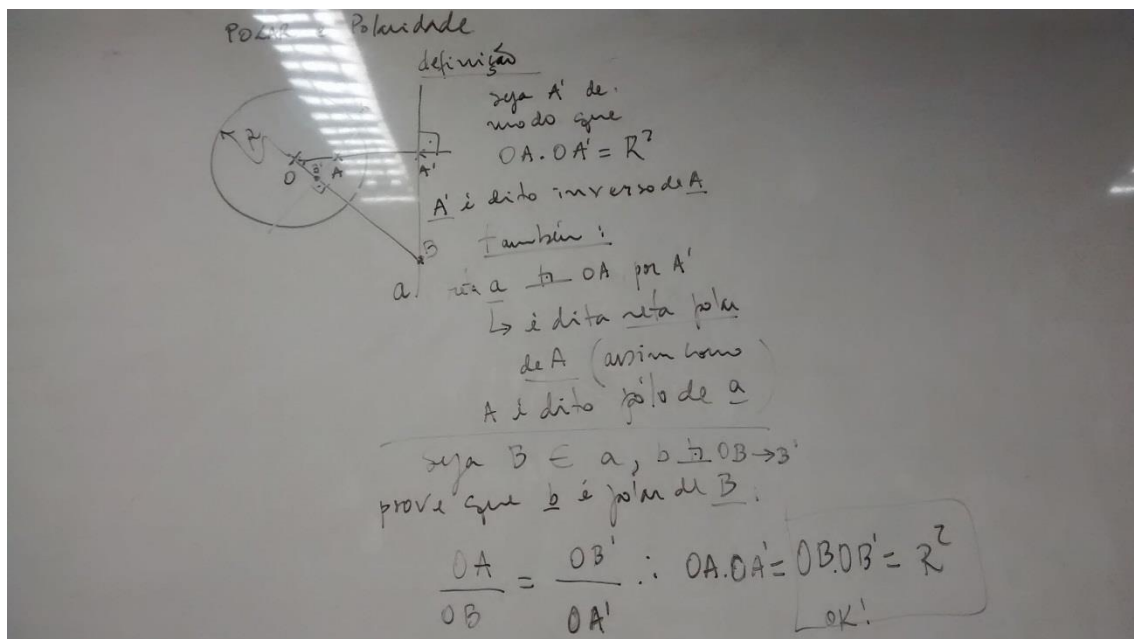 POLAR e Polaridade
definição
seja A' de
modo que
OA.OA' = R²
R
O
A
A'
B'
B
a
A' é dito inverso de A
também :
reta a ⊥ OA por A'
↳ é dita reta polar
de A (assim como
A é dito pólo de a)
seja B ∈ a, b ⊥ OB → B'
prove que b é polar de B.
OA/OB = OB'/OA' ∴ OA.OA' = OB.OB' = R²
OK!